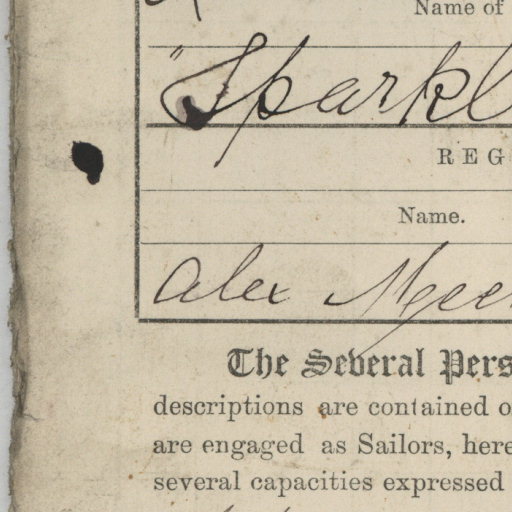 Name of
"Sparkl
REG
Name.
Alex
The Several Pers
descriptions are contained o
are engaged as Sailors, here
several capacities expressed